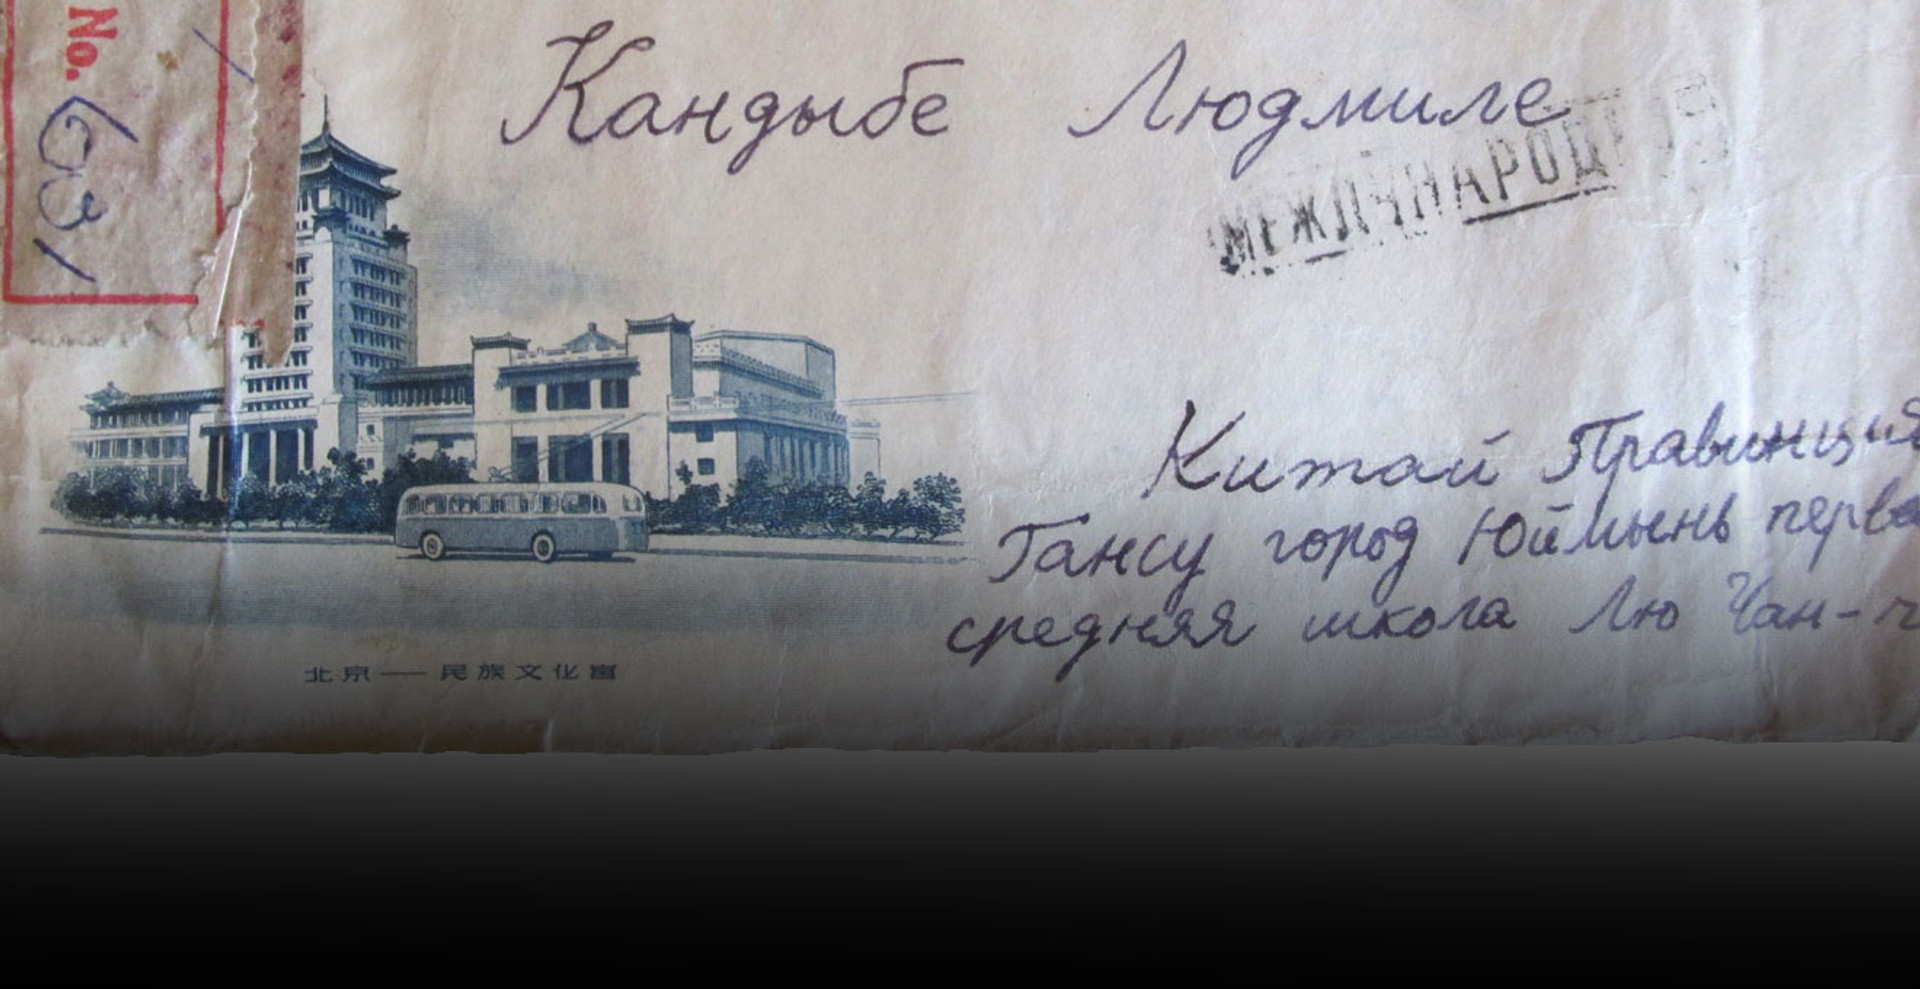 No. 631
Кандыбе Людмиле
МЕЖДУНАРОД
Китай Правинция
Гансу город Юймынь перва
средняя школа Лю Чан-ч
北京——民族文化宫